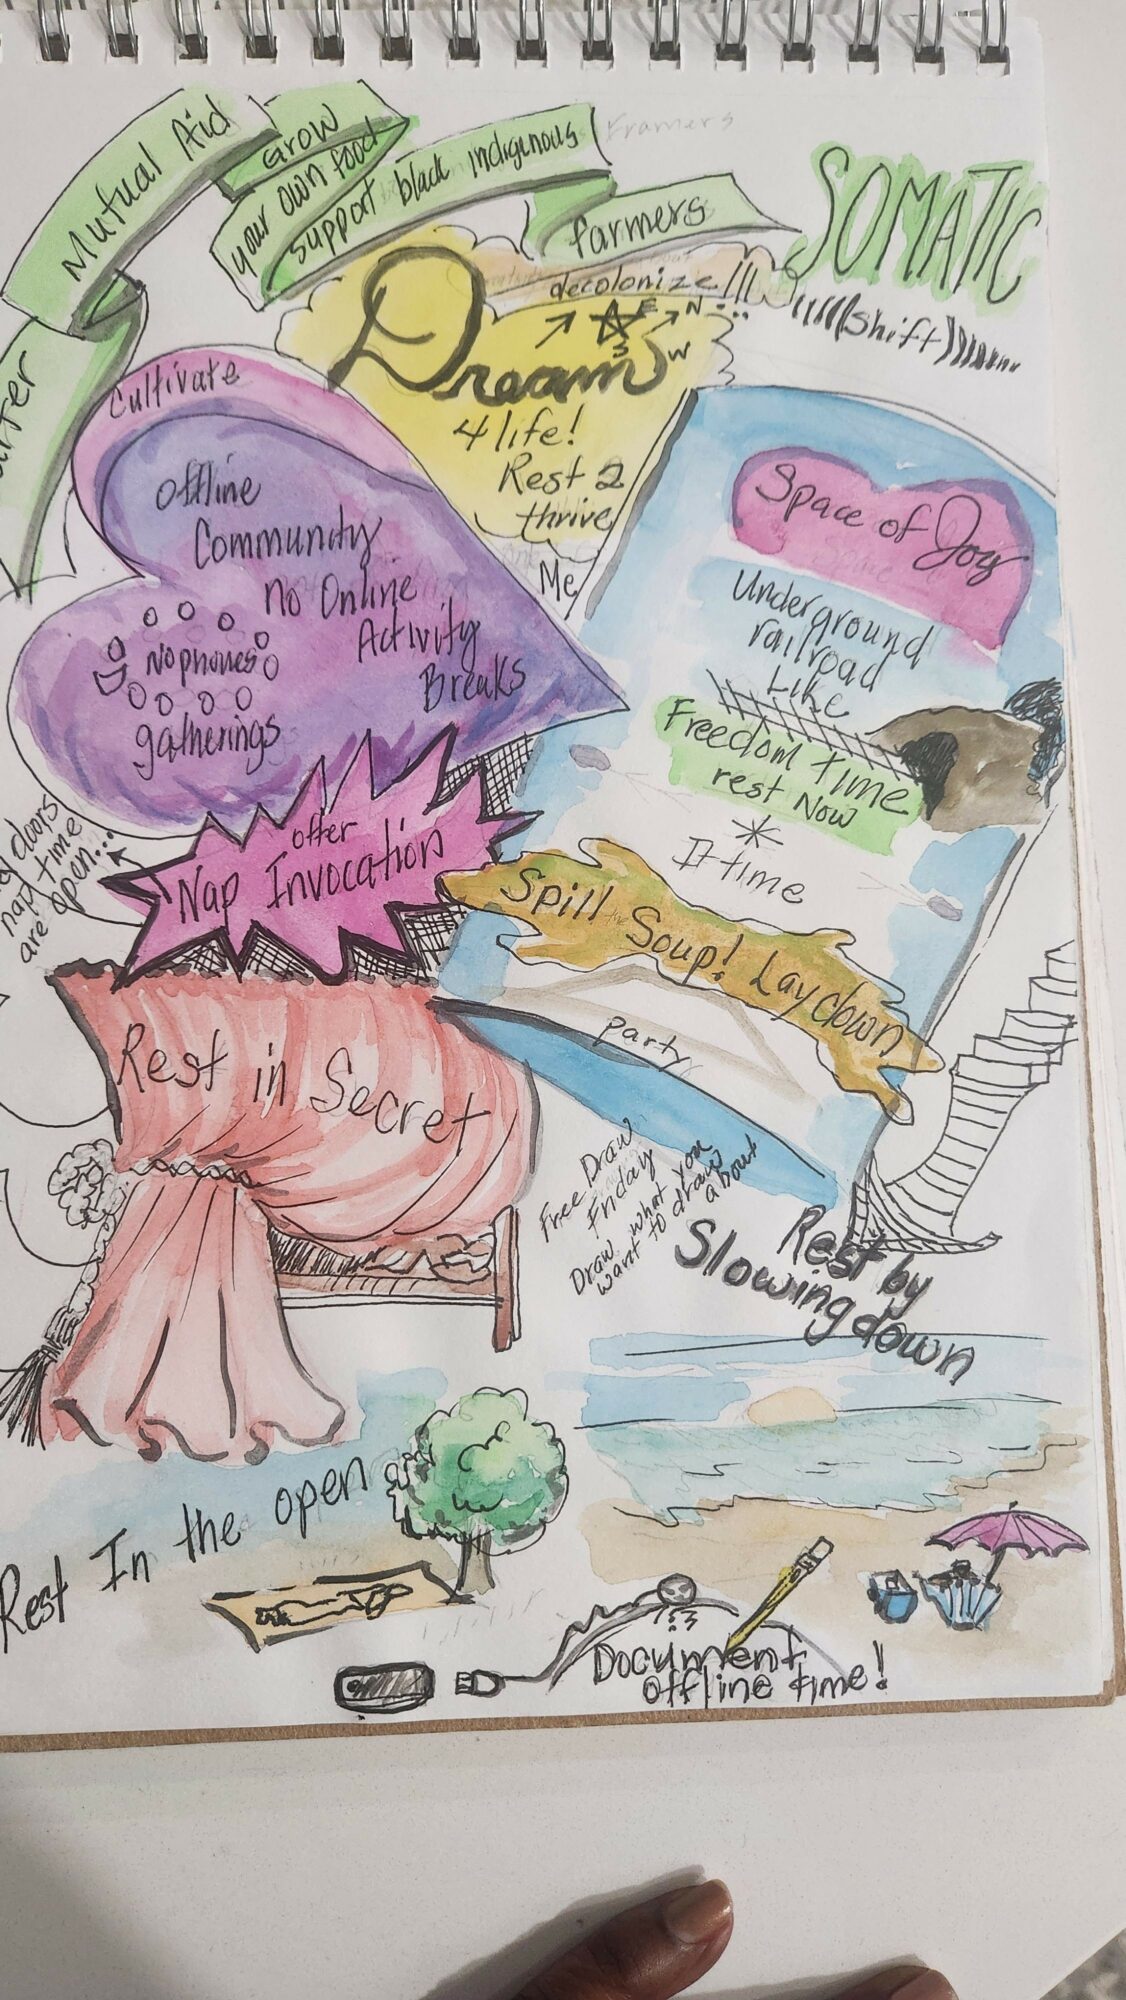 Mutual Aid
Grow
your own food
support black indigenous
Framers
farmers
SOMATIC
(((((shift)))))
Dream
decolonize!!!
E N
S W
4 life!
Rest 2
thrive
Me
Cultivate
Offline
Community
No Online
Activity
Breaks
No phones
gatherings
Space of Joy
Underground
railroad
Like
Freedom time
rest Now
It time
doors
nap time
are open...
offer
Nap Invocation
Spill the Soup! Lay down
party
Rest in Secret
Free Draw
Friday
Draw what you
want to draw
about
Rest by
Slowing down
Rest In the open
Document
offline time!